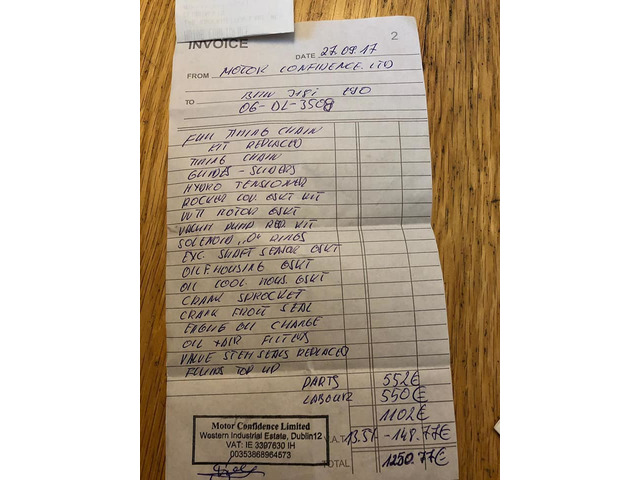 INVOICE
2
DATE 27.09.17
FROM MOTOR CONFIDENCE. LTD
TO BMW 318i E90
06-DL-3508
FULL TIMING CHAIN
KIT REPLACED
TIMING CHAIN
GUIDES - SLIDERS
HYDRO TENSIONER
ROCKER COV. GSKT KIT
VVTI MOTOR GSKT
VACUM PUMP REP. KIT
SOLENOID "O" RINGS
EXC. SHAFT SENSOR GSKT
OIL F. HOUSING GSKT
OIL COOL. HOUS. GSKT
CRANK SPROCKET
CRANK FRONT SEAL
ENGINE OIL CHANGE
OIL + AIR FILTERS
VALVE STEM SEALS REPLACED
FLUIDS TOP UP
PARTS 552€
LABOUR 550€
1102€
V.A.T 13.5% - 148.77€
TOTAL 1250.77€
Motor Confidence Limited
Western Industrial Estate, Dublin12
VAT: IE 3397630 IH
00353868964573